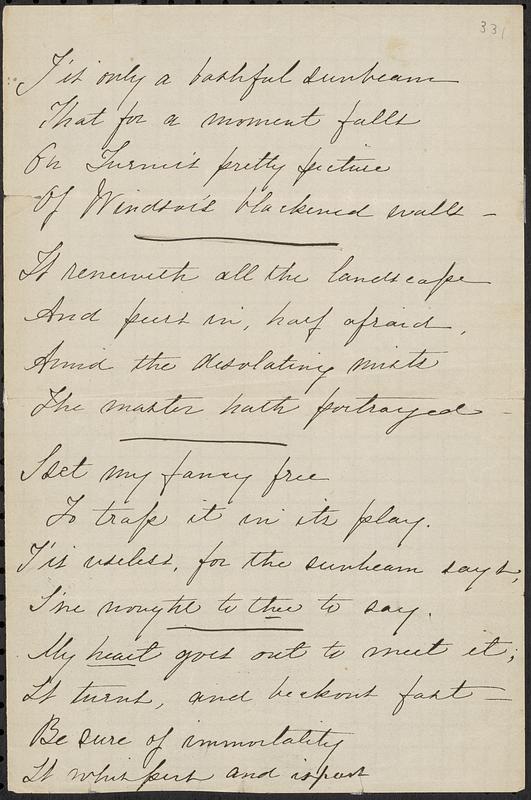 331
T'is only a bashful sunbeam
That for a moment falls
On Turner's pretty picture
Of Windsor's blackened walls –
It reneweth all the landscape
And peers in, half afraid,
Amid the desolating mists
The master hath portrayed –
I set my fancy free
To trap it in its play.
T'is useless, for the sunbeam says,
I've nought to thee to say.
My heart goes out to meet it;
It turns, and beckons fast –
Be sure of immortality
It whispers and is past